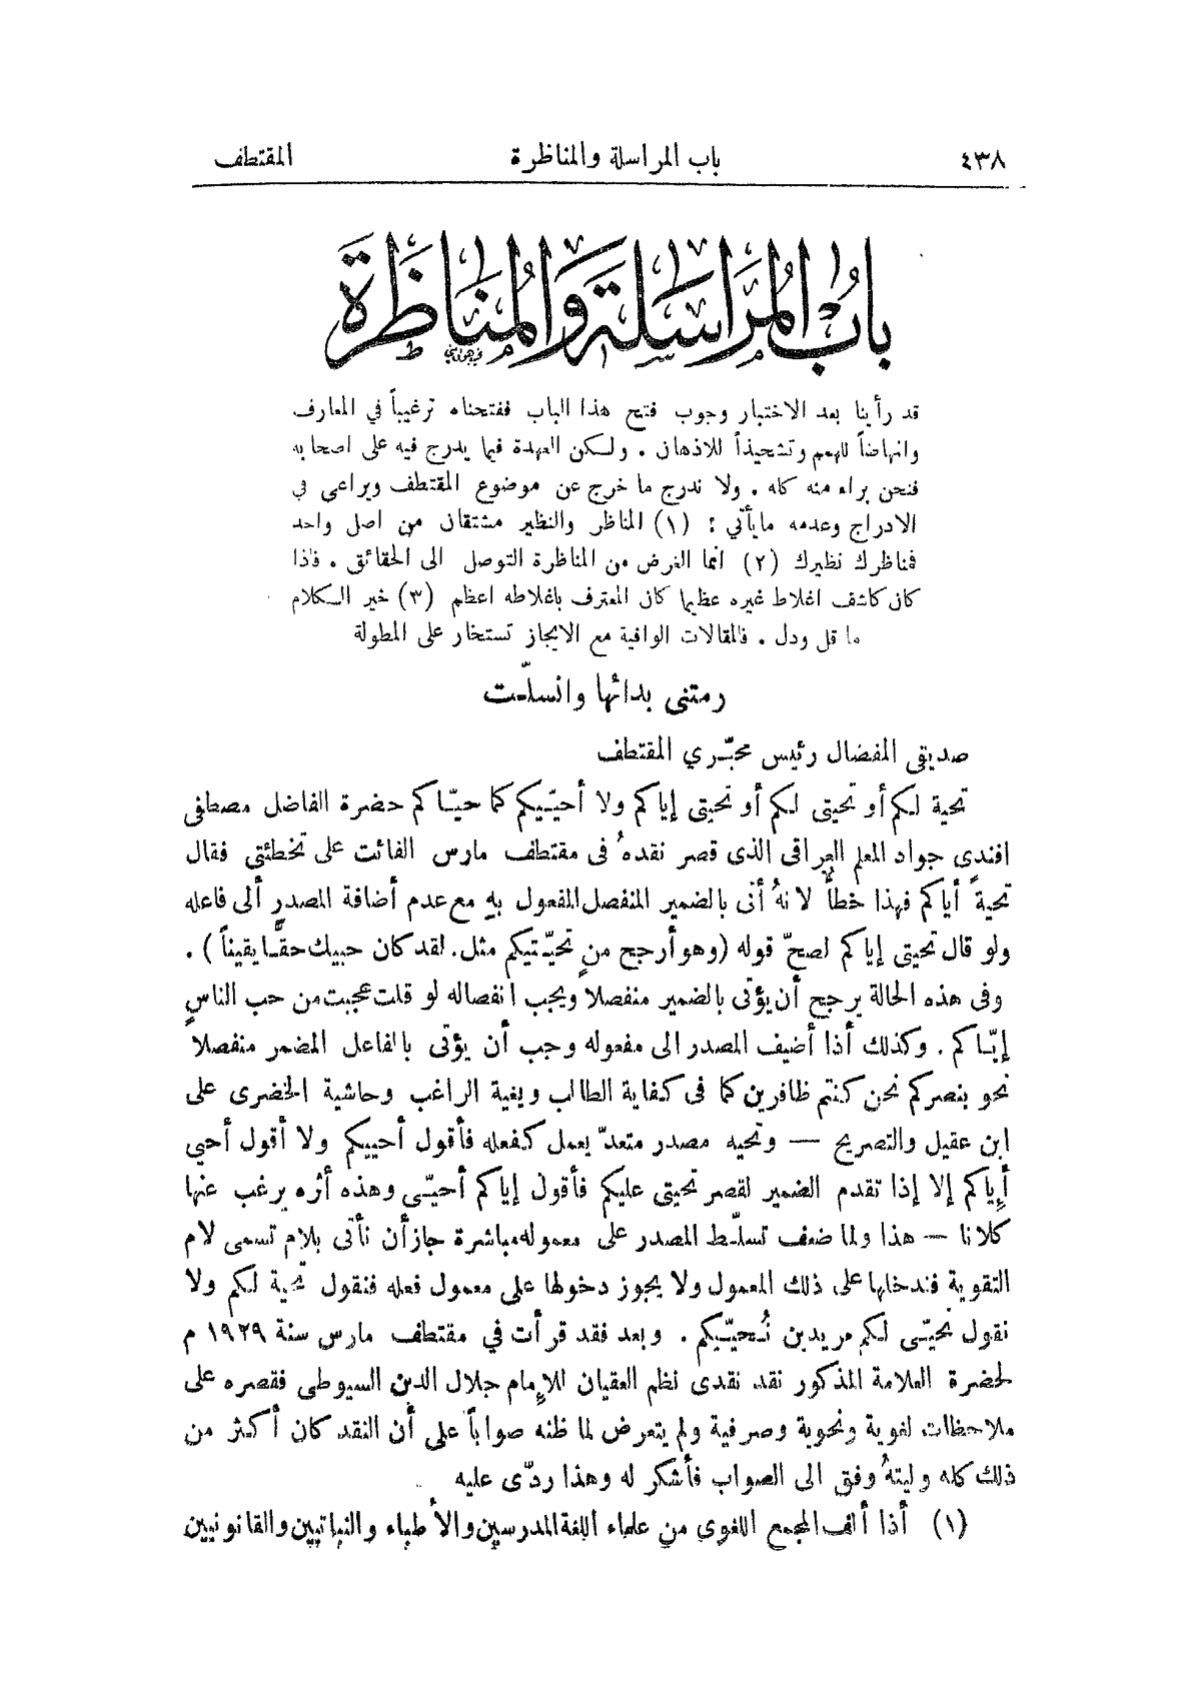 ٤٣٨ باب المراسلة والمناظرة المقتطف
باب المراسلة والمناظرة
قد رأينا بعد الاختبار وجوب فتح هذا الباب ففتحناه ترغيباً في المعارف
وانهاضاً للهمم وتشحيذاً للاذهان . ولكن العهدة فيما يدرج فيه على اصحابه
فنحن براء منه كله . ولا ندرج ما خرج عن موضوع المقتطف ويراعي في
الادراج وعدمه ما يأتي : (١) المناظر والنظير مشتقان من اصل واحد
فمناظرك نظيرك (٢) انما الغرض من المناظرة التوصل الى الحقائق . فاذا
كان كاشف اغلاط غيره عظيما كان المعترف باغلاطه اعظم (٣) خير الكلام
ما قل ودل . فالمقالات الوافية مع الايجاز تستخار على المطولة
رمتنى بدائها وانسلّت
صديقي المفضال رئيس محبّري المقتطف
تحية لكم أو تحيتى لكم أو تحيتى إياكم ولا أحيّيكم كما حيّاكم حضرة الفاضل مصطفى
افندى جواد المعلم العراقى الذى قصر نقدهُ فى مقتطف مارس الفائت على تخطئتي فقال
تحيةً أياكم فهذا خطأٌ لانهُ أتى بالضمير المنفصل المفعول بهِ مع عدم أضافة المصدرِ ألى فاعله
ولو قال تحيتى إياكم لصحّ قوله (وهو أرجح من تحيّتيكم مثل. لقد كان حبيك حقًّا يقيناً ) .
وفى هذه الحالة يرجح أن يؤتى بالضمير منفصلاً ويجب انفصاله لو قلت عجبت من حب الناسِ
إيّاكم . وكذلك أذا أضيف المصدر الى مفعوله وجب أن يؤتى بالفاعل المضمر منفصلاً
نحو بنصركم نحن كنتم ظافرين كما فى كفاية الطالب وبغية الراغب وحاشية الخضرى على
ابن عقيل والتصريح — وتحيه مصدر متعدّ يعمل كفعله فأقول أحييكم ولا أقول أحيي
أإياكم إلا إذا تقدم الضمير لقصر تحيتى عليكم فأقول إياكم أحيّى وهذه أثره يرغب عنها
كلانا — هذا ولما ضعف تسلّط المصدر على معموله مباشرة جاز أن نأتى بلام تسمى لام
التقوية فندخلها على ذلك المعمول ولا يجوز دخولها على معمول فعله فنقول تحية لكم ولا
نقول نحيّى لكم مريدين نُحيّيكم . وبعد فقد قرأت في مقتطف مارس سنة ١٩٢٩ م
لحضرة العلامة المذكور نقد نقدى نظم العقيان للإمام جلال الدين السيوطى فقصره على
ملاحظات لغوية ونحوية وصرفية ولم يتعرض لما ظنه صواباً على أن النقد كان أكثر من
ذلك كله وليتهُ وفق الى الصواب فأشكر له وهذا ردّى عليه
(١) أذا ألف المجمع اللغوى من علماء اللغة المدرسين والأطباء والنباتيين والقانونيين